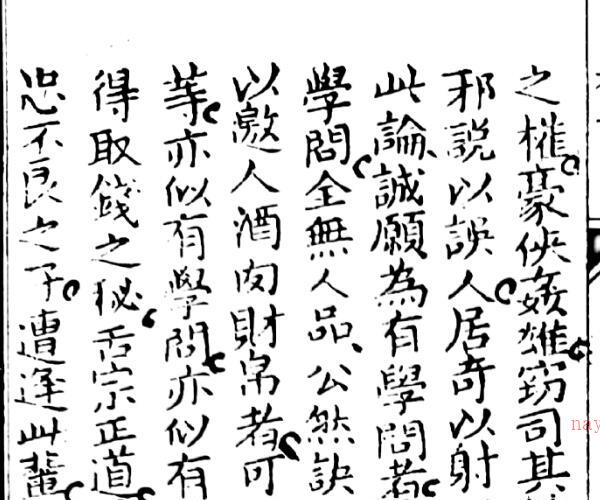 之權豪俠姦雄竊司其
邪說以誤人居奇以射
此論誠願為有學問者
學問全無人品公然訣
以邀人酒肉財帛者可
等亦似有學問亦似有
得取錢之秘舌宗正道
忠不良之子遭逢此輩
nay